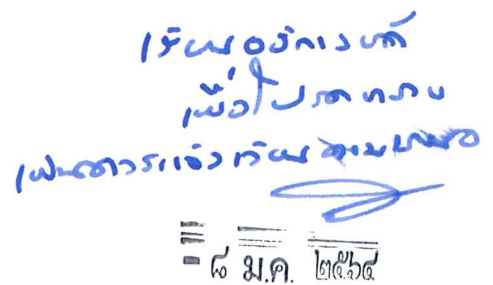 เรียน อธิการบดี
เพื่อโปรดทราบ
เห็นควรแจ้งเวียน
- ๘ ม.ค. ๒๕๖๔